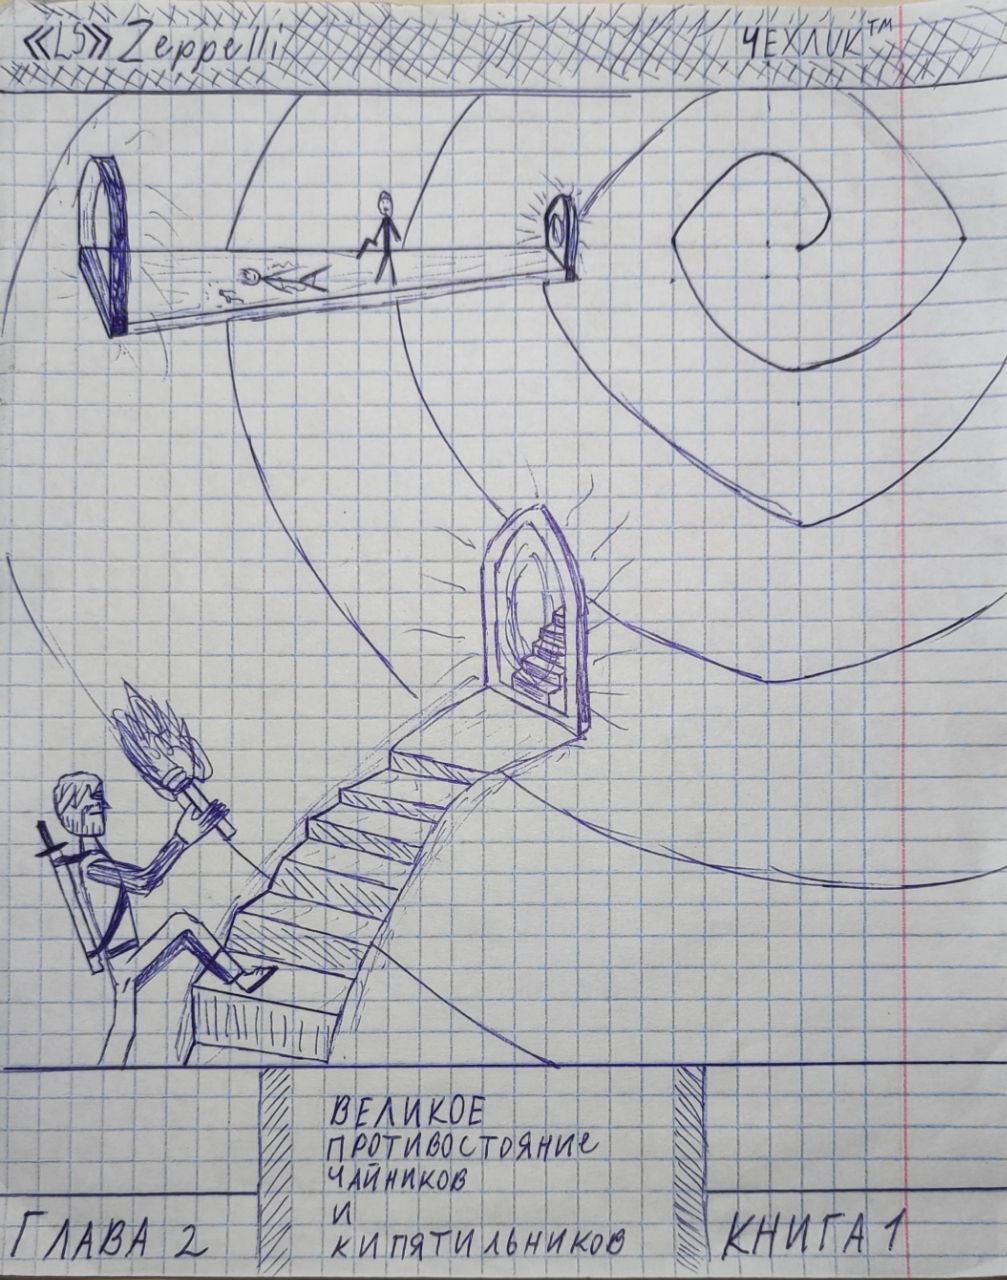 «LS» Zeppelli
ЧЕХЛИК™
ВЕЛИКОЕ
ПРОТИВОСТОЯНИЕ
ЧАЙНИКОВ
И
КИПЯТИЛЬНИКОВ
ГЛАВА 2
КНИГА 1